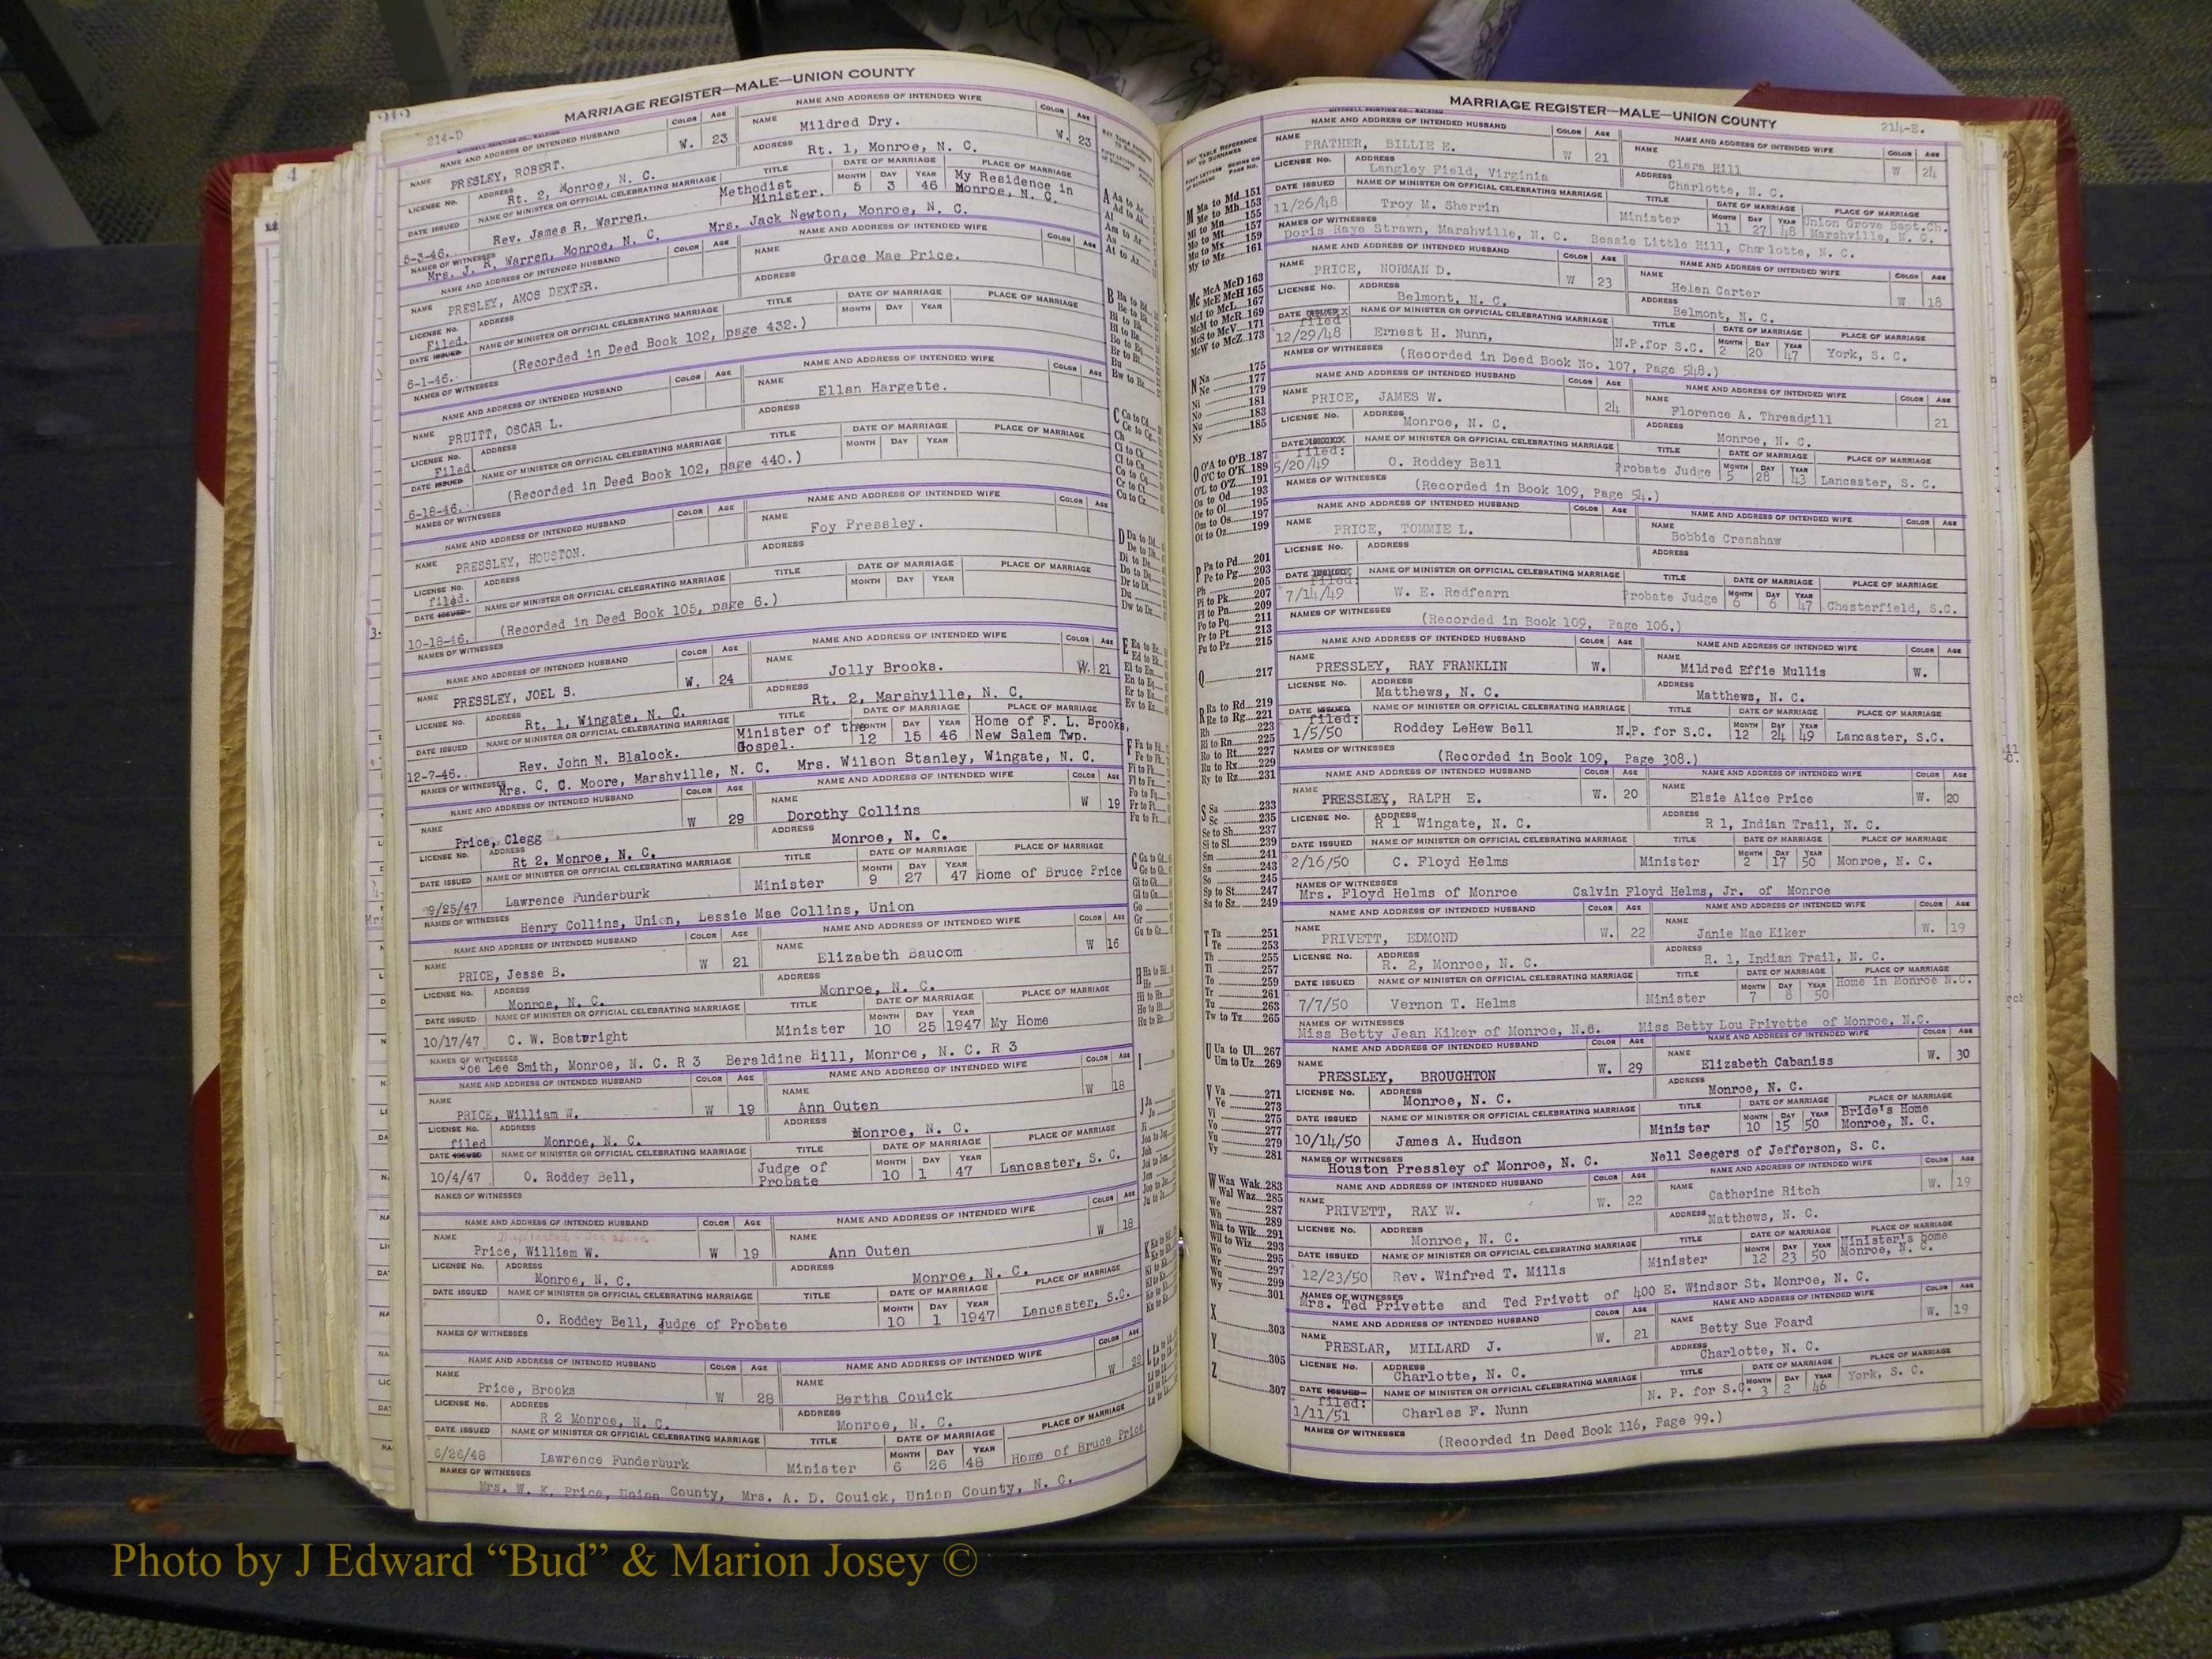 MARRIAGE REGISTER—MALE—UNION COUNTY
214-D
MITCHELL PRINTING CO., RALEIGH
NAME AND ADDRESS OF INTENDED HUSBAND COLOR AGE NAME AND ADDRESS OF INTENDED WIFE COLOR AGE
NAME PRESLEY, ROBERT. W. 23 NAME Mildred Dry. W. 23
LICENSE No. ADDRESS Rt. 2, Monroe, N. C. ADDRESS Rt. 1, Monroe, N. C.
DATE ISSUED NAME OF MINISTER OR OFFICIAL CELEBRATING MARRIAGE TITLE DATE OF MARRIAGE PLACE OF MARRIAGE
5-3-46. Rev. James R. Warren. Methodist Minister. MONTH 5 DAY 3 YEAR 46 My Residence in Monroe, N. C.
NAMES OF WITNESSES Mrs. J. R. Warren, Monroe, N. C. Mrs. Jack Newton, Monroe, N. C.
NAME AND ADDRESS OF INTENDED HUSBAND COLOR AGE NAME AND ADDRESS OF INTENDED WIFE COLOR AGE
NAME PRESLEY, AMOS DEXTER. NAME Grace Mae Price.
LICENSE No. ADDRESS ADDRESS
Filed.
DATE ISSUED NAME OF MINISTER OR OFFICIAL CELEBRATING MARRIAGE TITLE DATE OF MARRIAGE PLACE OF MARRIAGE
6-1-46. (Recorded in Deed Book 102, page 432.) MONTH DAY YEAR
NAMES OF WITNESSES
NAME AND ADDRESS OF INTENDED HUSBAND COLOR AGE NAME AND ADDRESS OF INTENDED WIFE COLOR AGE
NAME PRUITT, OSCAR L. NAME Ellan Hargette.
LICENSE No. ADDRESS ADDRESS
Filed
DATE ISSUED NAME OF MINISTER OR OFFICIAL CELEBRATING MARRIAGE TITLE DATE OF MARRIAGE PLACE OF MARRIAGE
6-18-46. (Recorded in Deed Book 102, page 440.) MONTH DAY YEAR
NAMES OF WITNESSES
NAME AND ADDRESS OF INTENDED HUSBAND COLOR AGE NAME AND ADDRESS OF INTENDED WIFE COLOR AGE
NAME PRESSLEY, HOUSTON. NAME Foy Pressley.
LICENSE No. ADDRESS ADDRESS
filed.
DATE ISSUED NAME OF MINISTER OR OFFICIAL CELEBRATING MARRIAGE TITLE DATE OF MARRIAGE PLACE OF MARRIAGE
10-18-46. (Recorded in Deed Book 105, page 6.) MONTH DAY YEAR
NAMES OF WITNESSES
NAME AND ADDRESS OF INTENDED HUSBAND COLOR AGE NAME AND ADDRESS OF INTENDED WIFE COLOR AGE
NAME PRESSLEY, JOEL S. W. 24 NAME Jolly Brooks. W. 21
LICENSE No. ADDRESS Rt. 1, Wingate, N. C. ADDRESS Rt. 2, Marshville, N. C.
DATE ISSUED NAME OF MINISTER OR OFFICIAL CELEBRATING MARRIAGE TITLE DATE OF MARRIAGE PLACE OF MARRIAGE
12-7-46. Rev. John N. Blalock. Minister of the Gospel. MONTH 12 DAY 15 YEAR 46 Home of F. L. Brooks, New Salem Twp.
NAMES OF WITNESSES Mrs. C. C. Moore, Marshville, N. C. Mrs. Wilson Stanley, Wingate, N. C.
NAME AND ADDRESS OF INTENDED HUSBAND COLOR AGE NAME AND ADDRESS OF INTENDED WIFE COLOR AGE
NAME Price, Clegg W 29 NAME Dorothy Collins W 19
LICENSE No. ADDRESS Rt 2, Monroe, N. C. ADDRESS Monroe, N. C.
DATE ISSUED NAME OF MINISTER OR OFFICIAL CELEBRATING MARRIAGE TITLE DATE OF MARRIAGE PLACE OF MARRIAGE
9/25/47 Lawrence Funderburk Minister MONTH 9 DAY 27 YEAR 47 Home of Bruce Price
NAMES OF WITNESSES Henry Collins, Union, Lessie Mae Collins, Union
NAME AND ADDRESS OF INTENDED HUSBAND COLOR AGE NAME AND ADDRESS OF INTENDED WIFE COLOR AGE
NAME PRICE, Jesse B. W 21 NAME Elizabeth Baucom W 16
LICENSE No. ADDRESS Monroe, N. C. ADDRESS Monroe, N. C.
DATE ISSUED NAME OF MINISTER OR OFFICIAL CELEBRATING MARRIAGE TITLE DATE OF MARRIAGE PLACE OF MARRIAGE
10/17/47 C. W. Boatwright Minister MONTH 10 DAY 25 YEAR 1947 My Home
NAMES OF WITNESSES Joe Lee Smith, Monroe, N. C. R 3 Beraldine Hill, Monroe, N. C. R 3
NAME AND ADDRESS OF INTENDED HUSBAND COLOR AGE NAME AND ADDRESS OF INTENDED WIFE COLOR AGE
NAME PRICE, William W. W 19 NAME Ann Outen W 18
LICENSE No. ADDRESS Monroe, N. C. ADDRESS Monroe, N. C.
filed
DATE ISSUED NAME OF MINISTER OR OFFICIAL CELEBRATING MARRIAGE TITLE DATE OF MARRIAGE PLACE OF MARRIAGE
10/4/47 O. Roddey Bell, Judge of Probate MONTH 10 DAY 1 YEAR 47 Lancaster, S. C.
NAMES OF WITNESSES
NAME AND ADDRESS OF INTENDED HUSBAND COLOR AGE NAME AND ADDRESS OF INTENDED WIFE COLOR AGE
Duplicated - See above.
NAME Price, William W. W 19 NAME Ann Outen W 18
LICENSE No. ADDRESS Monroe, N. C. ADDRESS Monroe, N. C.
DATE ISSUED NAME OF MINISTER OR OFFICIAL CELEBRATING MARRIAGE TITLE DATE OF MARRIAGE PLACE OF MARRIAGE
O. Roddey Bell, Judge of Probate MONTH 10 DAY 1 YEAR 1947 Lancaster, S.C.
NAMES OF WITNESSES
NAME AND ADDRESS OF INTENDED HUSBAND COLOR AGE NAME AND ADDRESS OF INTENDED WIFE COLOR AGE
NAME Price, Brooks W 28 NAME Bertha Couick W 22
LICENSE No. ADDRESS R 2 Monroe, N. C. ADDRESS Monroe, N. C.
DATE ISSUED NAME OF MINISTER OR OFFICIAL CELEBRATING MARRIAGE TITLE DATE OF MARRIAGE PLACE OF MARRIAGE
6/26/48 Lawrence Funderburk Minister MONTH 6 DAY 26 YEAR 48 Home of Bruce Price
NAMES OF WITNESSES Mrs. W. K. Price, Union County, Mrs. A. D. Couick, Union County, N. C.
MARRIAGE REGISTER—MALE—UNION COUNTY
214-E.
MITCHELL PRINTING CO., RALEIGH
NAME AND ADDRESS OF INTENDED HUSBAND COLOR AGE NAME AND ADDRESS OF INTENDED WIFE COLOR AGE
NAME PRATHER, BILLIE E. W 21 Clara Hill W 24
LICENSE No. ADDRESS Langley Field, Virginia ADDRESS Charlotte, N. C.
DATE ISSUED NAME OF MINISTER OR OFFICIAL CELEBRATING MARRIAGE TITLE DATE OF MARRIAGE PLACE OF MARRIAGE
11/26/48 Troy M. Sherrin Minister MONTH 11 DAY 27 YEAR 48 Union Grove Bapt. Ch. Marshville, N. C.
NAMES OF WITNESSES Doris Raye Strawn, Marshville, N. C. Bessie Little Hill, Charlotte, N. C.
NAME AND ADDRESS OF INTENDED HUSBAND COLOR AGE NAME AND ADDRESS OF INTENDED WIFE COLOR AGE
NAME PRICE, NORMAN D. W 23 NAME Helen Carter W 18
LICENSE No. ADDRESS Belmont, N. C. ADDRESS Belmont, N. C.
DATE filed NAME OF MINISTER OR OFFICIAL CELEBRATING MARRIAGE TITLE DATE OF MARRIAGE PLACE OF MARRIAGE
12/29/48 Ernest H. Nunn, N.P.for S.C. MONTH 2 DAY 20 YEAR 47 York, S. C.
NAMES OF WITNESSES (Recorded in Deed Book No. 107, Page 548.)
NAME AND ADDRESS OF INTENDED HUSBAND COLOR AGE NAME AND ADDRESS OF INTENDED WIFE COLOR AGE
NAME PRICE, JAMES W. 24 NAME Florence A. Threadgill 21
LICENSE No. ADDRESS Monroe, N. C. ADDRESS Monroe, N. C.
DATE filed: NAME OF MINISTER OR OFFICIAL CELEBRATING MARRIAGE TITLE DATE OF MARRIAGE PLACE OF MARRIAGE
5/20/49 O. Roddey Bell Probate Judge MONTH 5 DAY 28 YEAR 43 Lancaster, S. C.
NAMES OF WITNESSES (Recorded in Book 109, Page 54.)
NAME AND ADDRESS OF INTENDED HUSBAND COLOR AGE NAME AND ADDRESS OF INTENDED WIFE COLOR AGE
NAME PRICE, TOMMIE L. NAME Bobbie Crenshaw
LICENSE No. ADDRESS ADDRESS
DATE filed: NAME OF MINISTER OR OFFICIAL CELEBRATING MARRIAGE TITLE DATE OF MARRIAGE PLACE OF MARRIAGE
7/14/49 W. E. Redfearn Probate Judge MONTH 6 DAY 6 YEAR 47 Chesterfield, S.C.
NAMES OF WITNESSES (Recorded in Book 109, Page 106.)
NAME AND ADDRESS OF INTENDED HUSBAND COLOR AGE NAME AND ADDRESS OF INTENDED WIFE COLOR AGE
NAME PRESSLEY, RAY FRANKLIN W. NAME Mildred Effie Mullis W.
LICENSE No. ADDRESS Matthews, N. C. ADDRESS Matthews, N. C.
DATE ISSUED filed: NAME OF MINISTER OR OFFICIAL CELEBRATING MARRIAGE TITLE DATE OF MARRIAGE PLACE OF MARRIAGE
1/5/50 Roddey LeHew Bell N.P. for S.C. MONTH 12 DAY 24 YEAR 49 Lancaster, S.C.
NAMES OF WITNESSES (Recorded in Book 109, Page 308.)
NAME AND ADDRESS OF INTENDED HUSBAND COLOR AGE NAME AND ADDRESS OF INTENDED WIFE COLOR AGE
NAME PRESSLEY, RALPH E. W. 20 NAME Elsie Alice Price W. 20
LICENSE No. ADDRESS R 1 Wingate, N. C. ADDRESS R 1, Indian Trail, N. C.
DATE ISSUED NAME OF MINISTER OR OFFICIAL CELEBRATING MARRIAGE TITLE DATE OF MARRIAGE PLACE OF MARRIAGE
2/16/50 C. Floyd Helms Minister MONTH 2 DAY 17 YEAR 50 Monroe, N. C.
NAMES OF WITNESSES Mrs. Floyd Helms of Monroe Calvin Floyd Helms, Jr. of Monroe
NAME AND ADDRESS OF INTENDED HUSBAND COLOR AGE NAME AND ADDRESS OF INTENDED WIFE COLOR AGE
NAME PRIVETT, EDMOND W. 22 NAME Janie Mae Kiker W. 19
LICENSE No. ADDRESS R. 2, Monroe, N. C. ADDRESS R. 1, Indian Trail, N. C.
DATE ISSUED NAME OF MINISTER OR OFFICIAL CELEBRATING MARRIAGE TITLE DATE OF MARRIAGE PLACE OF MARRIAGE
7/7/50 Vernon T. Helms Minister MONTH 7 DAY 8 YEAR 50 Home in Monroe N.C.
NAMES OF WITNESSES Miss Betty Jean Kiker of Monroe, N.C. Miss Betty Lou Privette of Monroe, N.C.
NAME AND ADDRESS OF INTENDED HUSBAND COLOR AGE NAME AND ADDRESS OF INTENDED WIFE COLOR AGE
NAME PRESSLEY, BROUGHTON W. 29 NAME Elizabeth Cabaniss W. 30
LICENSE No. ADDRESS Monroe, N. C. ADDRESS Monroe, N. C.
DATE ISSUED NAME OF MINISTER OR OFFICIAL CELEBRATING MARRIAGE TITLE DATE OF MARRIAGE PLACE OF MARRIAGE
10/14/50 James A. Hudson Minister MONTH 10 DAY 15 YEAR 50 Bride's Home Monroe, N. C.
NAMES OF WITNESSES Houston Pressley of Monroe, N. C. Nell Seegers of Jefferson, S. C.
NAME AND ADDRESS OF INTENDED HUSBAND COLOR AGE NAME AND ADDRESS OF INTENDED WIFE COLOR AGE
NAME PRIVETT, RAY W. W. 22 NAME Catherine Ritch W. 19
LICENSE No. ADDRESS Monroe, N. C. ADDRESS Matthews, N. C.
DATE ISSUED NAME OF MINISTER OR OFFICIAL CELEBRATING MARRIAGE TITLE DATE OF MARRIAGE PLACE OF MARRIAGE
12/23/50 Rev. Winfred T. Mills Minister MONTH 12 DAY 23 YEAR 50 Minister's home Monroe, N. C.
NAMES OF WITNESSES Mrs. Ted Privette and Ted Privett of 400 E. Windsor St. Monroe, N. C.
NAME AND ADDRESS OF INTENDED HUSBAND COLOR AGE NAME AND ADDRESS OF INTENDED WIFE COLOR AGE
NAME PRESLAR, MILLARD J. W. 21 NAME Betty Sue Foard W. 19
LICENSE No. ADDRESS Charlotte, N. C. ADDRESS Charlotte, N. C.
DATE ISSUED filed: NAME OF MINISTER OR OFFICIAL CELEBRATING MARRIAGE TITLE DATE OF MARRIAGE PLACE OF MARRIAGE
1/11/51 Charles F. Nunn N. P. for S.C. MONTH 3 DAY 2 YEAR 46 York, S. C.
NAMES OF WITNESSES (Recorded in Deed Book 116, Page 99.)
KEY TABLE REFERENCE TO SURNAMES
M Ma to Md..151
Me to Mh..153
Mi to Mn...155
Mo to Mt...157
Mu to Mx...159
My to Mz...161
Mc McA McD 163
McE McH 165
McI to McL...167
McM to McR..169
McS to McV...171
McW to McZ..173
N Na 175
Ne 177
179
Ni 181
No 183
Nu 185
Ny
O O'A to O'B..187
O'C to O'K..189
O'L to O'Z...191
Oa to Od...193
Oe to Ol...195
Om to Os...197
Ot to Oz...199
P Pa to Pd...201
Pe to Pg...203
Ph 205
Pi to Pk...207
Pl to Pn...209
Po to Pq...211
Pr to Pt...213
Pu to Pz...215
Q 217
R Ra to Rd...219
Re to Rg...221
Rh 223
Ri to Rn...225
Ro to Rt...227
Ru to Rx...229
Ry to Rz...231
S Sa 233
Sc 235
Se to Sh...237
Si to Sl...239
Sm 241
Sn 243
So 245
Sp to St...247
Su to Sz...249
T Ta 251
Te 253
Th 255
Ti 257
To 259
Tr 261
Tu 263
Tw to Tz...265
U Ua to Ul...267
Um to Uz...269
V Va 271
Ve 273
Vi 275
Vo 277
Vu 279
Vy 281
W Waa Wak..283
Wal Waz...285
We 287
Wh 289
Wia to Wik...291
Wil to Wiz...293
Wo 295
Wr 297
Wu 299
Wy 301
X 303
Y 305
Z 307
Photo by J Edward “Bud” & Marion Josey ©